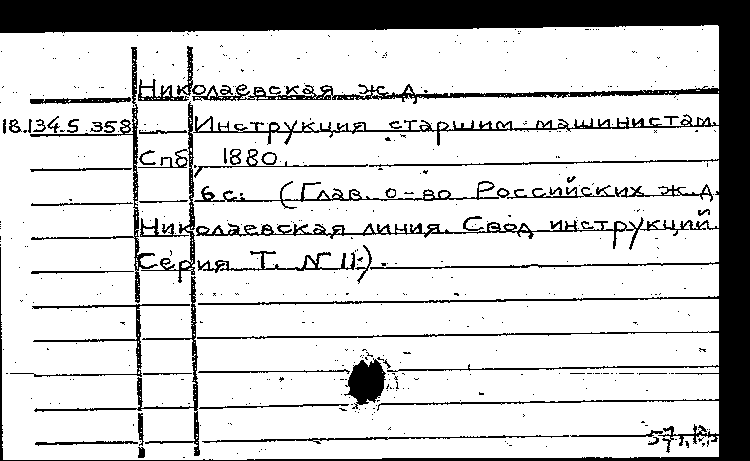 Николаевская ж.д.
18.134.5.358 Инструкция старшим машинистам.
Спб, 1880.
6 с. (Глав. о-во Российских ж.д.
Николаевская линия. Свод инструкций.
Серия Т. № 11.).